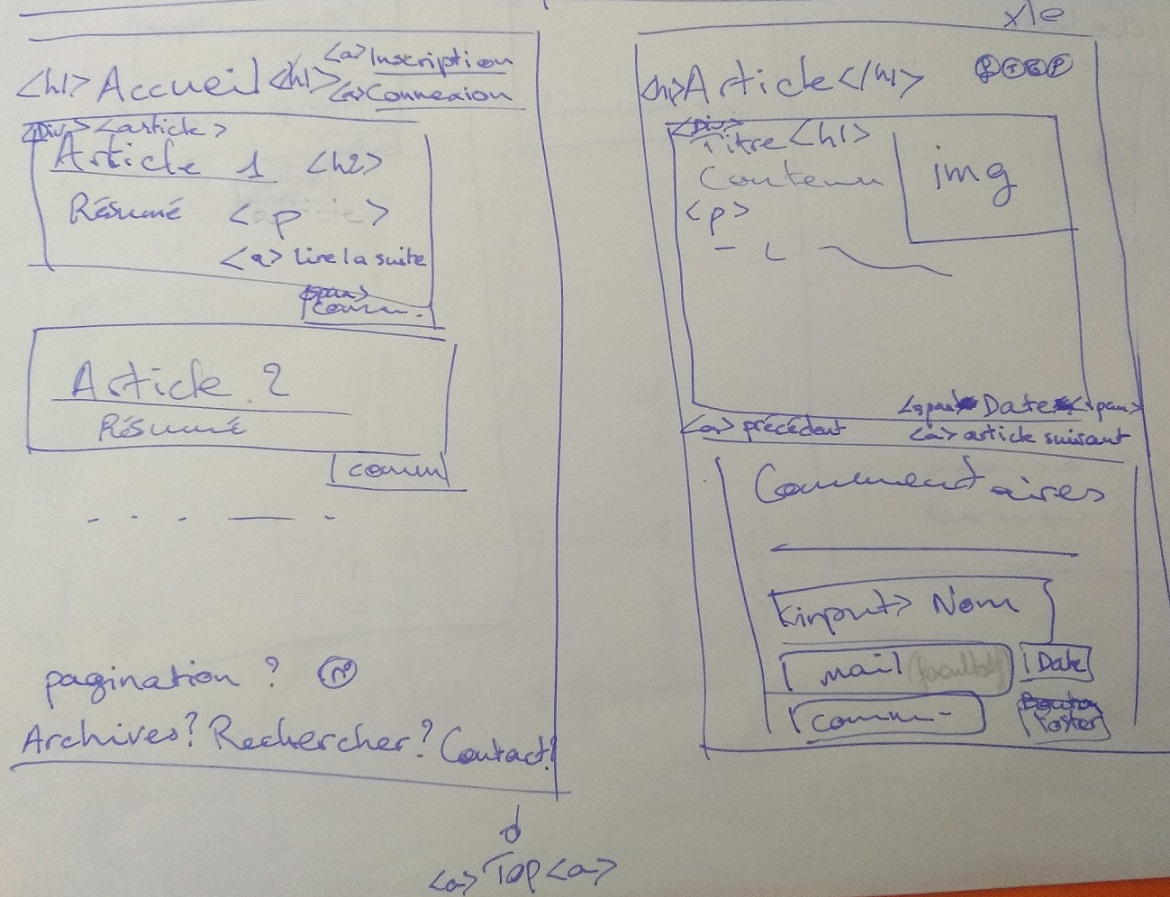 <h1> Accueil <h1>
<a> Inscription
<a> Connexion
<Div> <article>
Article 1 <h2>
Résumé <p>
<a> Lire la suite
<span>
comm.
Article 2
Résumé
comm
pagination ? n°
Archives? Rechercher? Contact?
<a> Top <a>
<h1> Article </h1>
<Div>
Titre <h1>
img
Contenu
<p>
<span> Date <span>
<a> précédent
<a> article suivant
Commentaires
<input> Nom
mail (facultatif)
Date
comm-
Bouton
Poster